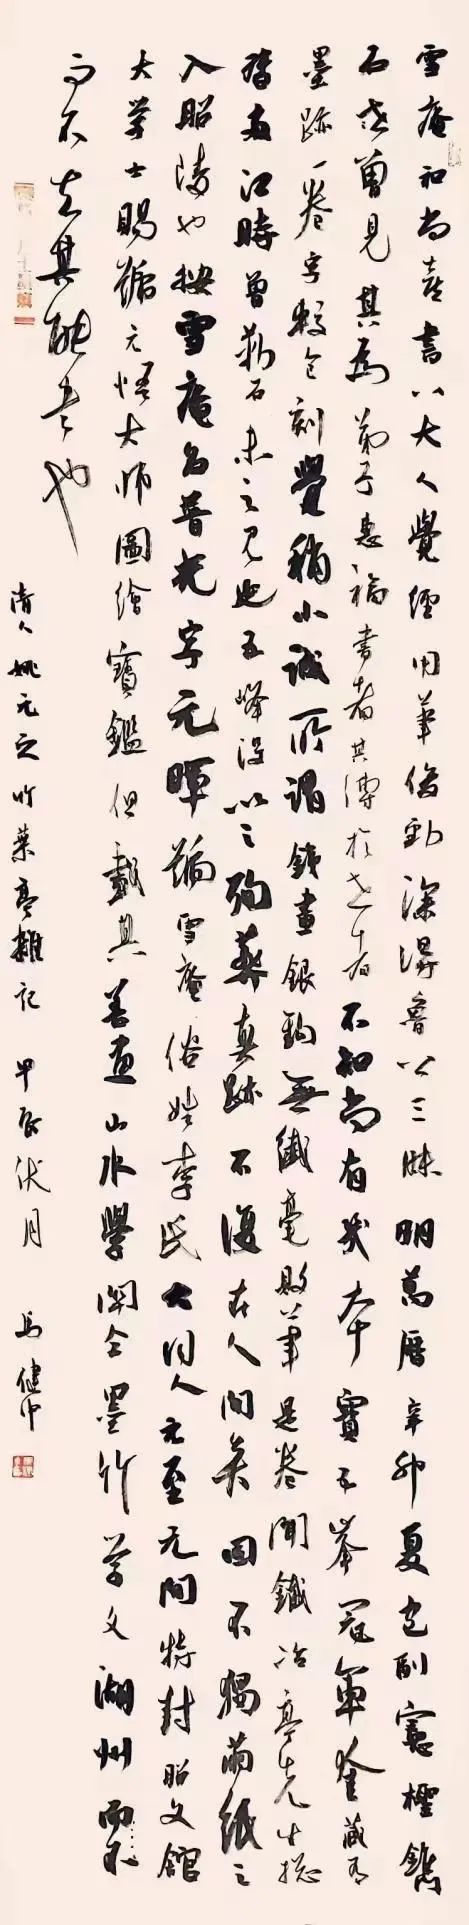 雪庵和尚喜書八大人覺經用筆俊勁深得魯公三昧明萬曆辛卯夏包副憲檉鐫
石曾見其為弟子惠福書者其傳於世者不知尚有幾本寶五峯冠軍奎藏有
墨跡一卷字較包刻覺稍小誠所謂鐵畫銀鉤無纖毫敗筆是卷聞鐵冶亭先生總
督兩江時曾勒石未之見也五峰沒以之殉葬真跡不復在人間矣固不獨繭紙之
入昭陵也按雪庵名普光字元暉號雪庵俗姓李氏大同人元至元間特封昭文館
大學士賜號元悟大師圖繪寶鑑但載其善畫山水學關仝墨竹學文湖州而不
而不言其能書也
清人姚元之竹葉亭雜記 甲辰伏月 馬健中